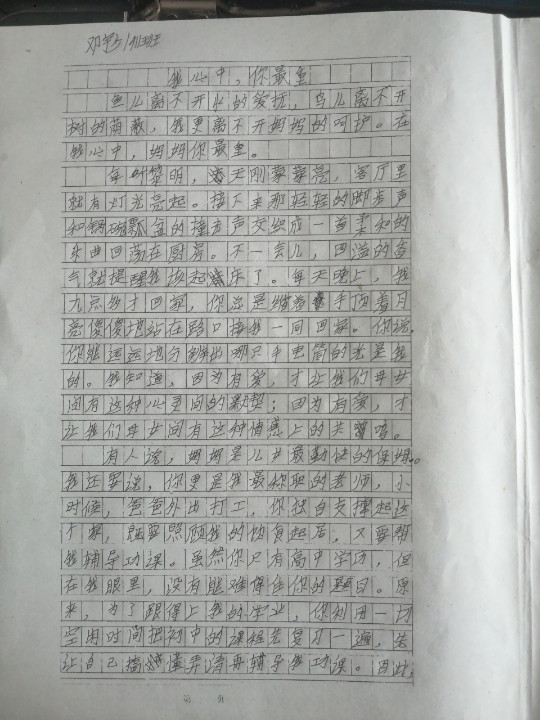 我心中,你最重
鱼儿离不开水的爱抚,鸟儿离不开
树的荫蔽,我更离不开妈妈的呵护。在
我心中,妈妈你最重。
每听黎明,天刚蒙蒙亮,客厅里
就有灯光亮起。接下来那轻轻的脚步声
和锅碗瓢盆的撞击声交织成一首柔和的
乐曲回荡在厨房。不一会儿,四溢的香
气就提醒我该起床了。每天晚上,我
九点多才回家,你总是手顶着月
亮傻傻地站在路口接我一同回家。你说,
你能远远地分辨出哪只手电筒的光是我
的。我知道,因为有爱,才让我们母女
间有这种心灵间的默契;因为有爱,才
让我们母女间有这种情感上的共鸣。
有人说,妈妈是儿女最勤快的保姆。
我还要说,你更是我最称职的老师,小
时候,爸爸外出打工,你独自支撑起这
个家,既要照顾我的饮食起居,又要帮
我辅导功课。虽然你只有高中学历,但
在我眼里,没有能难得住你的题目。原
来,为了跟得上我的学业,你利用一切
空闲时间把初中的课程去复习一遍,先
让自己搞懂弄清再辅导我功课。因此,
第 页